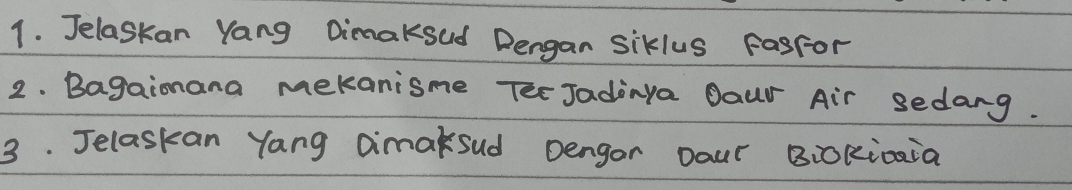 1. Jelaskan Yang Dimaksud Dengan Siklus Fasfor
2. Bagaimana Mekanisme Terjadinya Daur Air sedang.
3. Jelaskan Yang Dimaksud Dengan Daur Biokimia